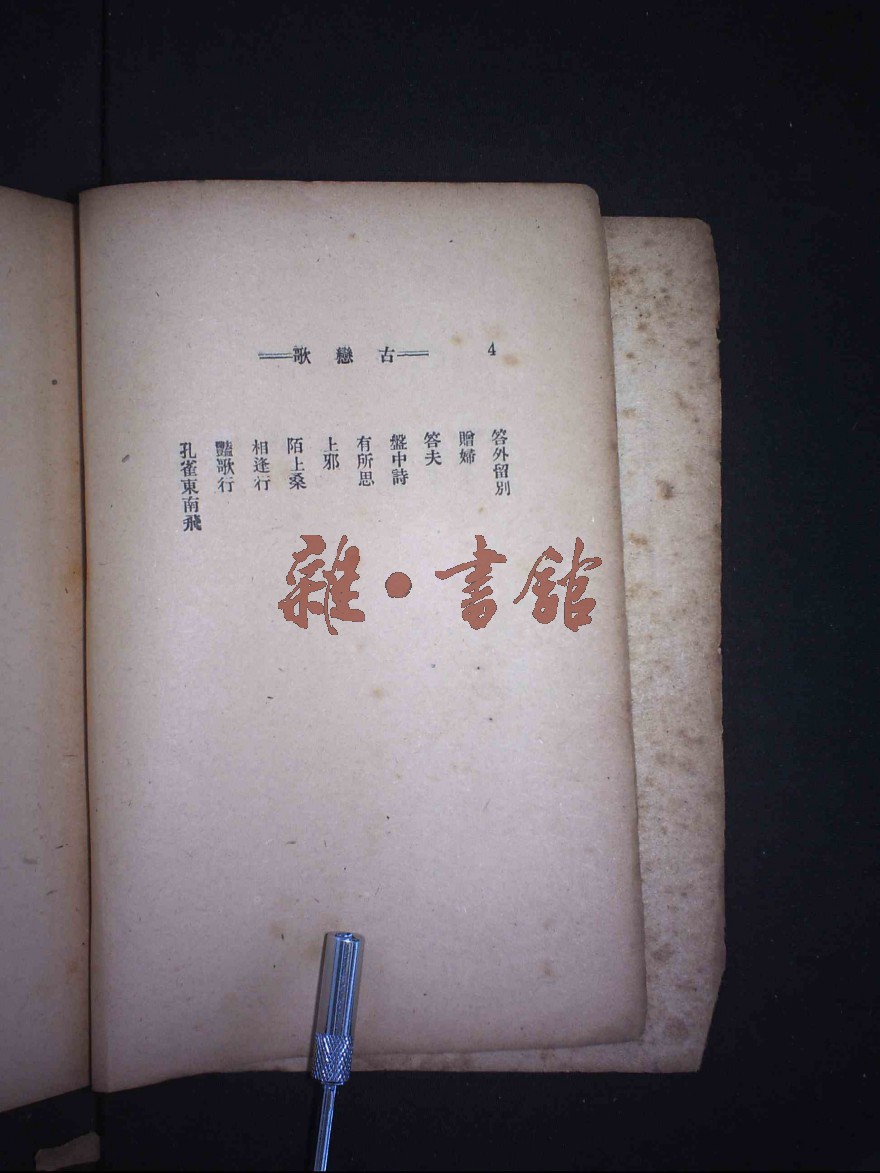 4
══古戀歌══
答外留別
贈婦
答夫
盤中詩
有所思
上邪
陌上桑
相逢行
豔歌行
孔雀東南飛
雜·書館